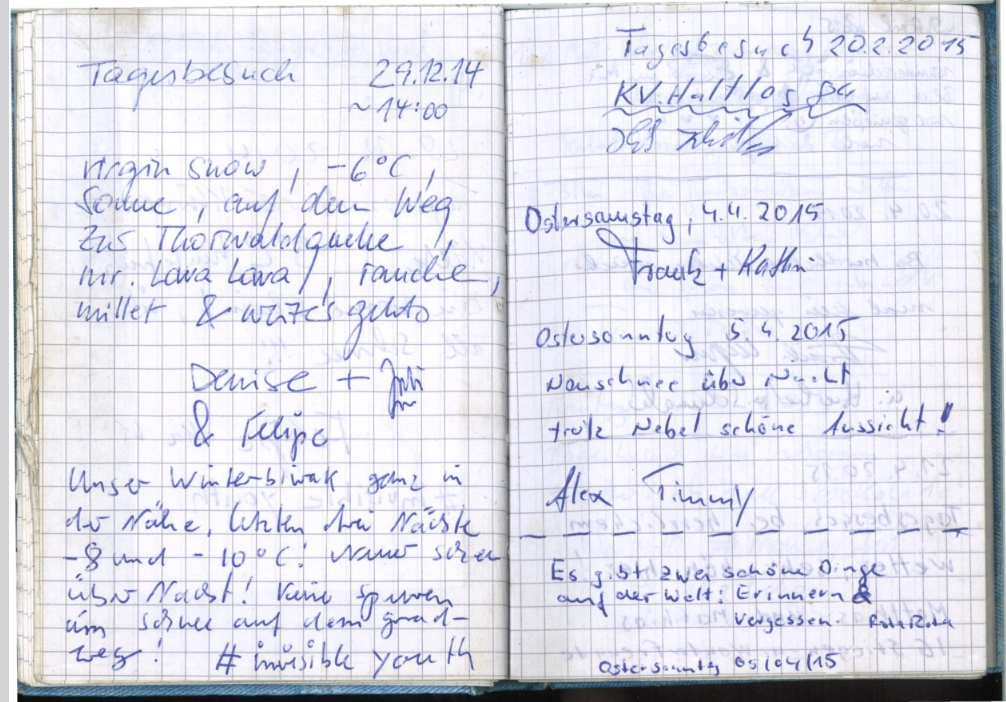 Tagesbesuch 29.12.14
~ 14:00
virgin snow, -6°C,
Sonne, auf dem Weg
zur Thorwaldquelle,
mr. Lava Lava /, rauche,
millet & weiter gehts
Denise +
& Felipe
Unser Winterbiwak ganz in
der Nähe, letzten drei Nächte
-8 und -10°C! Neuer schnee
über Nacht! Keine spuren
im schnee auf dem grad-
weg! # invisible youth
Tagesbesuch 20.2.2015
KV. Haltlos
Ostersamstag, 4.4.2015
Frank + Kathi
Ostersonntag 5.4.2015
Neuschnee über Nacht
trotz Nebel schöne Aussicht!
Alex Timmy
Es gibt zwei schöne Dinge
auf der Welt: Erinnern &
vergessen.
Ostersonntag 05/04/15